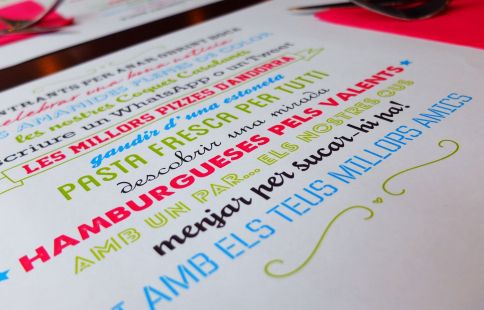 ENTRANTS PER ANAR OBRINT BOCA
celebrar una bona notícia
AMANIDES PLENES DE COLOR
les nostres Coques Catalanes
escriure un WhatsApp o un Tweet
LES MILLORS PIZZES D'ANDORRA
gaudir d'una estoneta
PASTA FRESCA PER TUTTI
descobrir una mirada
HAMBURGUESES PELS VALENTS
AMB UN PAR... ELS NOSTRES OUS
menjar per sucar-hi pa!
AMB ELS TEUS MILLORS AMICS